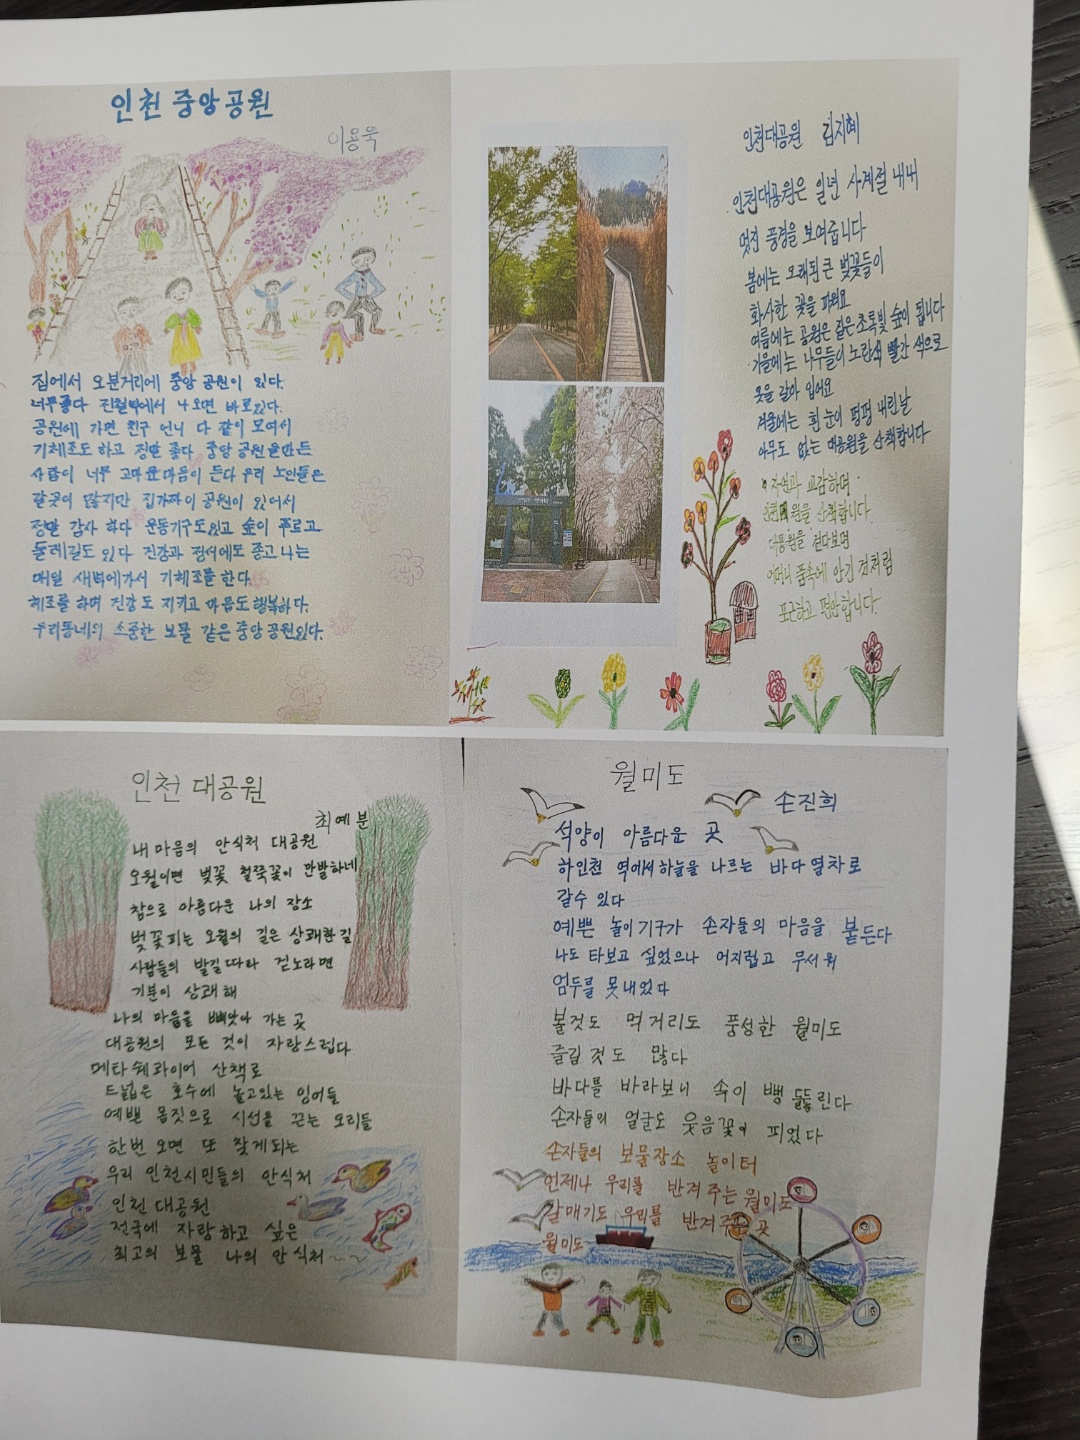 인천 중앙공원
이용욱
집에서 오분거리에 중앙 공원이 있다.
너무좋다 전철역에서 나오면 바로있다.
공원에 가면 친구 언니 다 같이 모여서
기체조도 하고 정말 좋다 중앙 공원을만든
사람이 너무 고마운마음이 든다 우리 노인들은
갈곳이 많지만 집가까이 공원이 있어서
정말 감사 하다 운동기구도있고 숲이 푸르고
둘레길도 있다 건강과 정서에도 좋고 나는
매일 새벽에가서 기체조를 한다
체조를 하며 건강도 지키고 마음도 행복하다.
우리동네의 소중한 보물 같은 중앙공원있다.
인천대공원 김지혜
인천대공원은 일년 사계절 내내
멋진 풍경을 보여줍니다
봄에는 오래된 큰 벚꽃들이
화사한 꽃을 피워요
여름에는 공원은 짙은 초록빛 숲이 됩니다
가을에는 나무들이 노란색 빨간 색으로
옷을 갈아 입어요
겨울에는 흰 눈이 펑펑 내린날
아무도 없는 대공원을 산책합니다
자연과 교감하며
인천 공원을 산책합니다
대공원을 걷다보면
어머니 품속에 안긴 것처럼
포근하고 평안합니다.
인천 대공원
최예분
내 마음의 안식처 대공원
오월이면 벚꽃 철쭉꽃이 만발하네
참으로 아름다운 나의 장소
벚꽃피는 오월의 길은 상쾌한길
사람들의 발길따라 걷노라면
기분이 상쾌해
나의 마음을 빼앗아 가는 곳
대공원의 모든 것이 자랑스럽다
메타쉐콰이어 산책로
드넓은 호수에 놀고있는 잉어들
예쁜 몸짓으로 시선을 끄는 오리들
한번 오면 또 찾게되는
우리 인천시민들의 안식처
인천 대공원
전국에 자랑하고 싶은
최고의 보물 나의 안식처~~
월미도
손진희
석양이 아름다운 곳
하인천 역에서 하늘을 나르는 바다 열차로
갈수 있다
예쁜 놀이기구가 손자들의 마음을 붙든다
나도 타보고 싶었으나 어지럽고 무서워
엄두를 못내었다
볼것도 먹거리도 풍성한 월미도
즐길 것도 많다
바다를 바라보니 속이 뻥 뚫린다
손자들의 얼굴도 웃음꽃이 피었다
손자들의 보물장소 놀이터
언제나 우리를 반겨 주는 월미도
갈매기도 우리를 반겨주는 곳
월미도